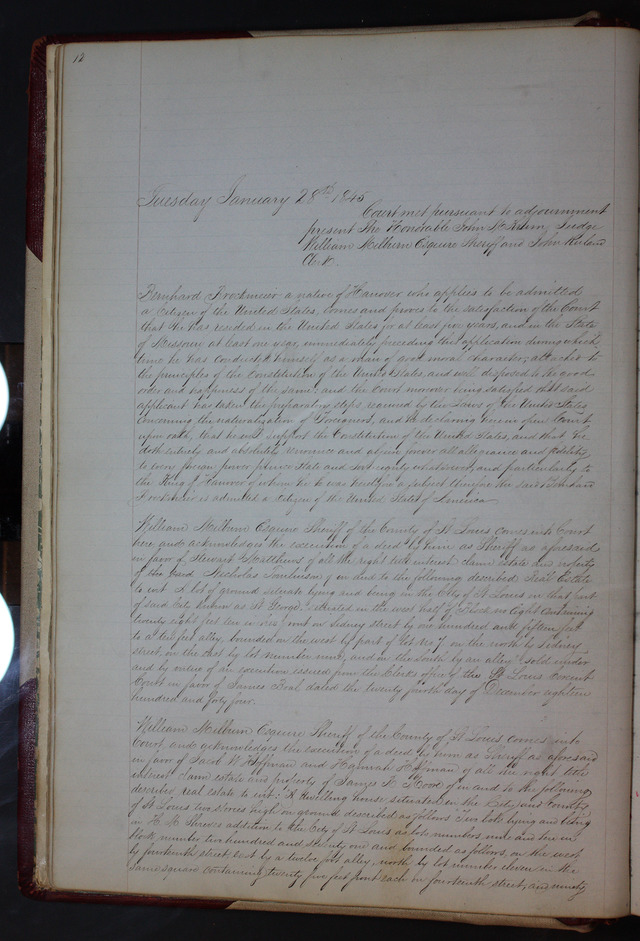 12
Tuesday January 28th 1845
Court met pursuant to adjournment
present The Honorable John M. Krum, Judge
William Milburn Esquire Sheriff and John Ruland
Clerk
Bernhard Brockmeier a native of Hanover who applies to be admitted
a citizen of the United States, comes and proves to the satisfaction of the Court
that he has resided in the United States for at least five years, and in the State
of Missouri at least one year, immediately preceding this application during which
time he has conducted himself as a man of good moral character, attached to
the principles of the Constitution of the United States, and well disposed to the good
order and happiness of the same; and the Court moreover being satisfied that said
applicant has taken the preparatory steps required by the Laws of the United States
concerning the naturalization of Foreigners, and he declaring here in open Court
upon oath, that he will support the Constitution of the United States, and that he
doth entirely and absolutely renounce and abjure forever all allegiance and fidelity
to every foreign power prince State and sovereignty whatsoever, and particularly to
the King of Hanover of whom he was heretofore a subject therefore the said Bernhard
Brockmeier is admitted a citizen of the United States of America
William Milburn Esquire Sheriff of the County of St Louis comes into Court
here and acknowledges the execution of a deed by him as Sheriff as aforesaid
in favor of Stewart Matthews of all the right title interest claim estate and property
of the said Nicholas Tomlinson of in and to the following described Real Estate
to wit A lot of ground situate lying and being in the City of St Louis in that part
of said City known as St George, situated in the west half of Block no Eight containing
twenty eight feet ten in front on Sidney street by one hundred and fifteen feet
to a ten feet alley, bounded on the west by part of lot No 7 on the north by Sidney
street on the East by lot number nine, and on the South by an alley sold under
and by virtue of an execution issued from the Clerks office of the St Louis Circuit
Court in favor of James Beal dated the twenty fourth day of December eighteen
hundred and forty four.
William Milburn Esquire Sheriff of the County of St Louis comes into
Court and acknowledges the execution of a deed by him as Sheriff as aforesaid
in favor of Jacob W Hoffman and Hannah Hoffman of all the right title
interest claim estate and property of James R. Hood of in and to the following
described real estate to wit: A dwelling house situated in the City and County
of St Louis two stories high on ground described as follows Two lots lying and being
in H. M. Shreves addition to the City of St Louis as lots numbers nine and ten in
block number two hundred and seventy one and bounded as follows, on the west
by fourteenth street, east by a twelve feet alley, north by lot number eleven in the
same square containing twenty five feet front each on fourteenth street, and ninety